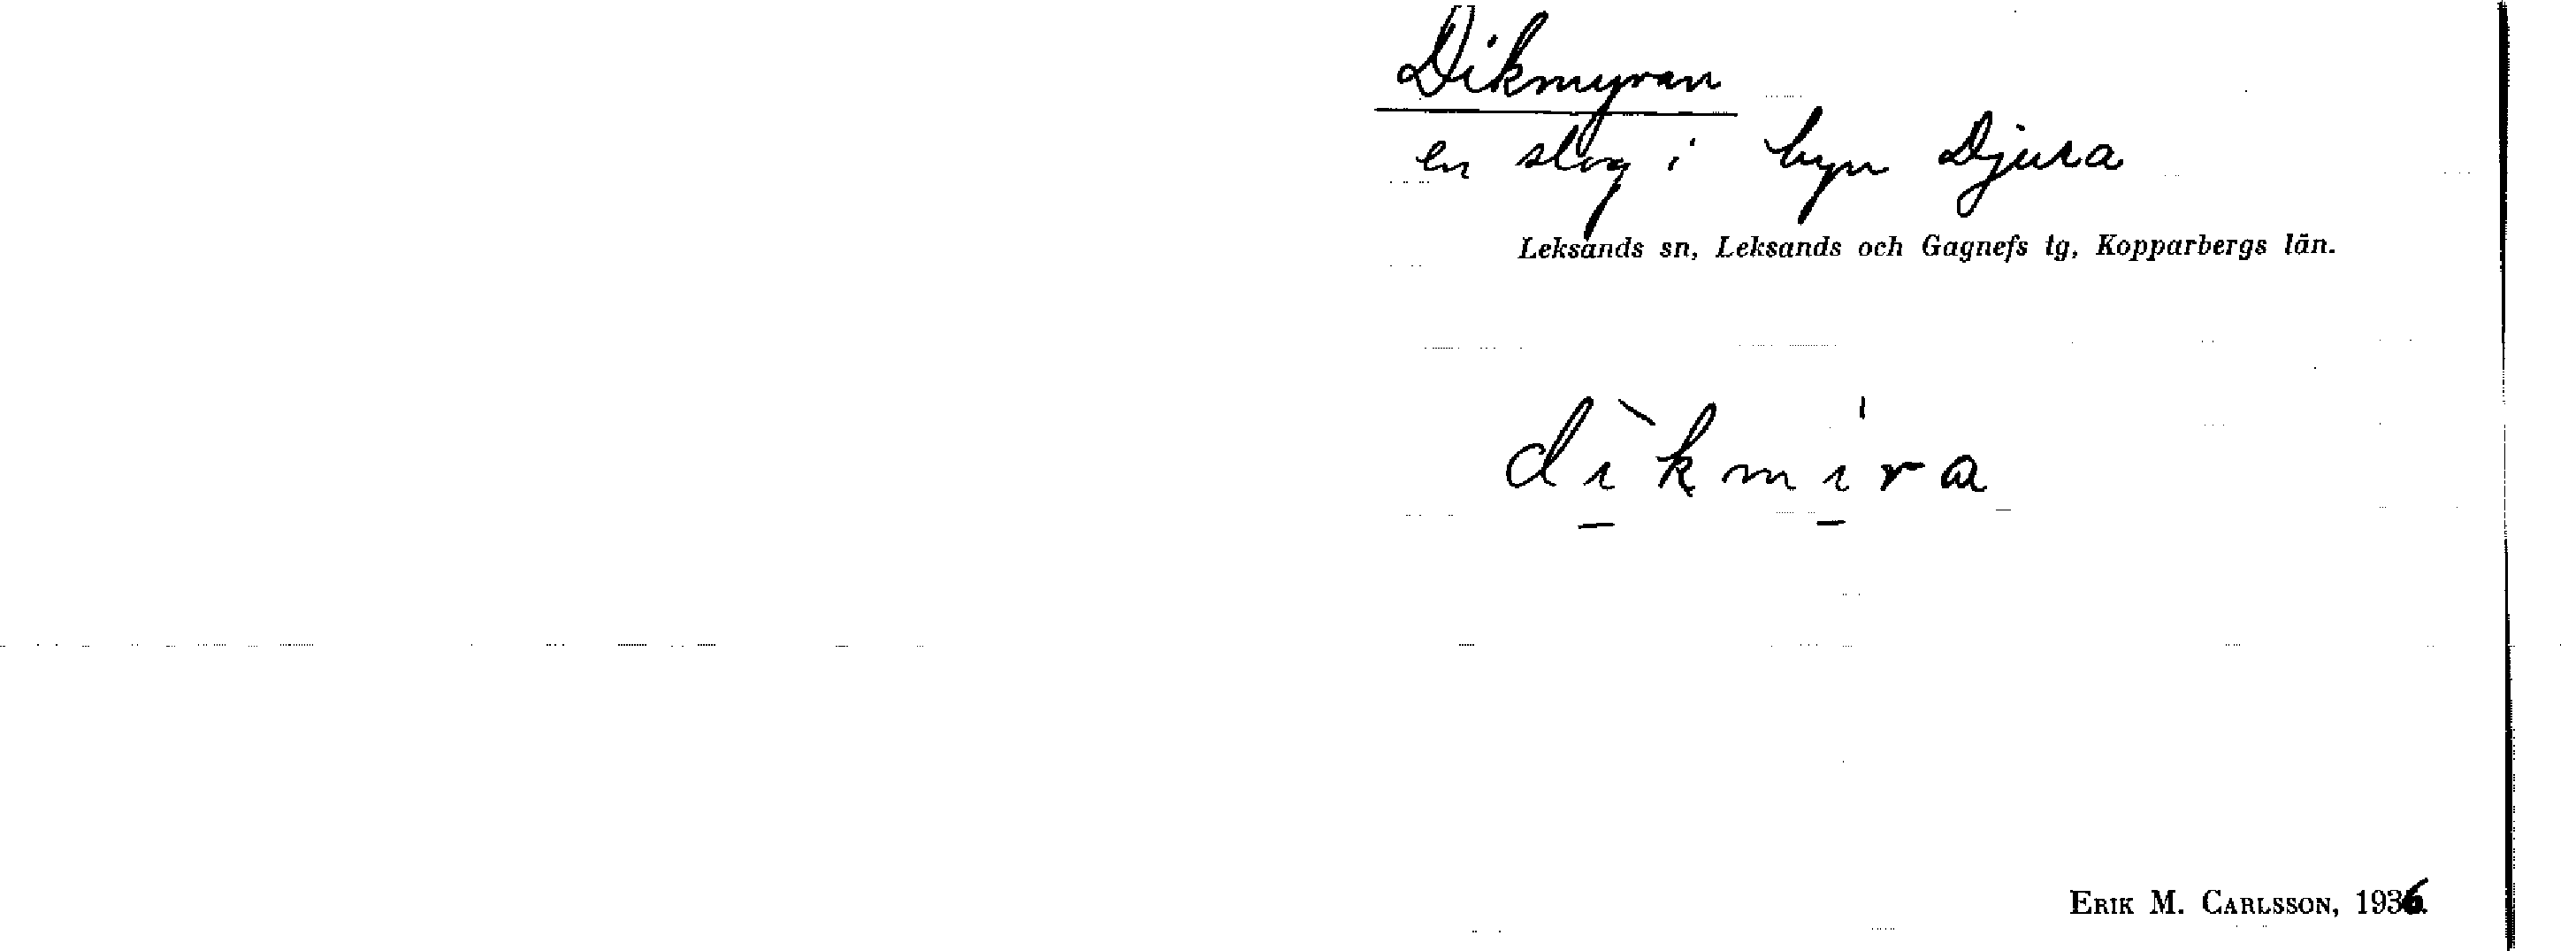 Dikmyran
en slog i byn Djura
Leksands sn, Leksands och Gagnefs tg, Kopparbergs län.
dìkmıra
ERIK M. CARLSSON, 1936.